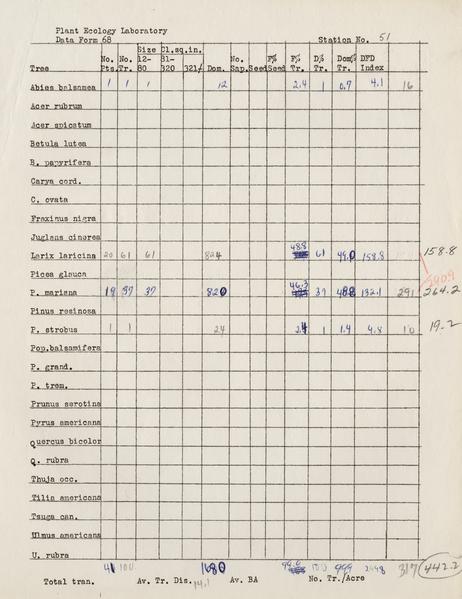 Plant Ecology Laboratory
Data Form 68 Station No. 51
Size Cl.sq.in.
No. No. 12- 81- No. F% F% D% Dom% DFD
Tree Pts. Tr. 80 320 321/ Dom. Sap. Seed Seed Tr. Tr. Tr. Index
Abies balsamea 1 1 1 12 2.4 1 0.7 4.1 16
Acer rubrum
Acer spicatum
Betula lutea
B. papyrifera
Carya cord.
C. ovata
Fraxinus nigra
Juglans cinerea
Larix laricina 20 61 61 824 48.8 61 49.0 158.8 158.8
Picea glauca
P. mariana 19 37 37 820 46.3 37 48.8 132.1 291 264.2
Pinus resinosa
P. strobus 1 1 24 2.4 1 1.4 4.8 10 19.2
Pop.balsamifera
P. grand.
P. trem.
Prunus serotina
Pyrus americana
Quercus bicolor
Q. rubra
Thuja occ.
Tilia americana
Tsuga can.
Ulmus americana
U. rubra
41 100 1680 99.9 100 999 317 442.2
Total tran. Av. Tr. Dis. 14.1 Av. BA No. Tr./Acre